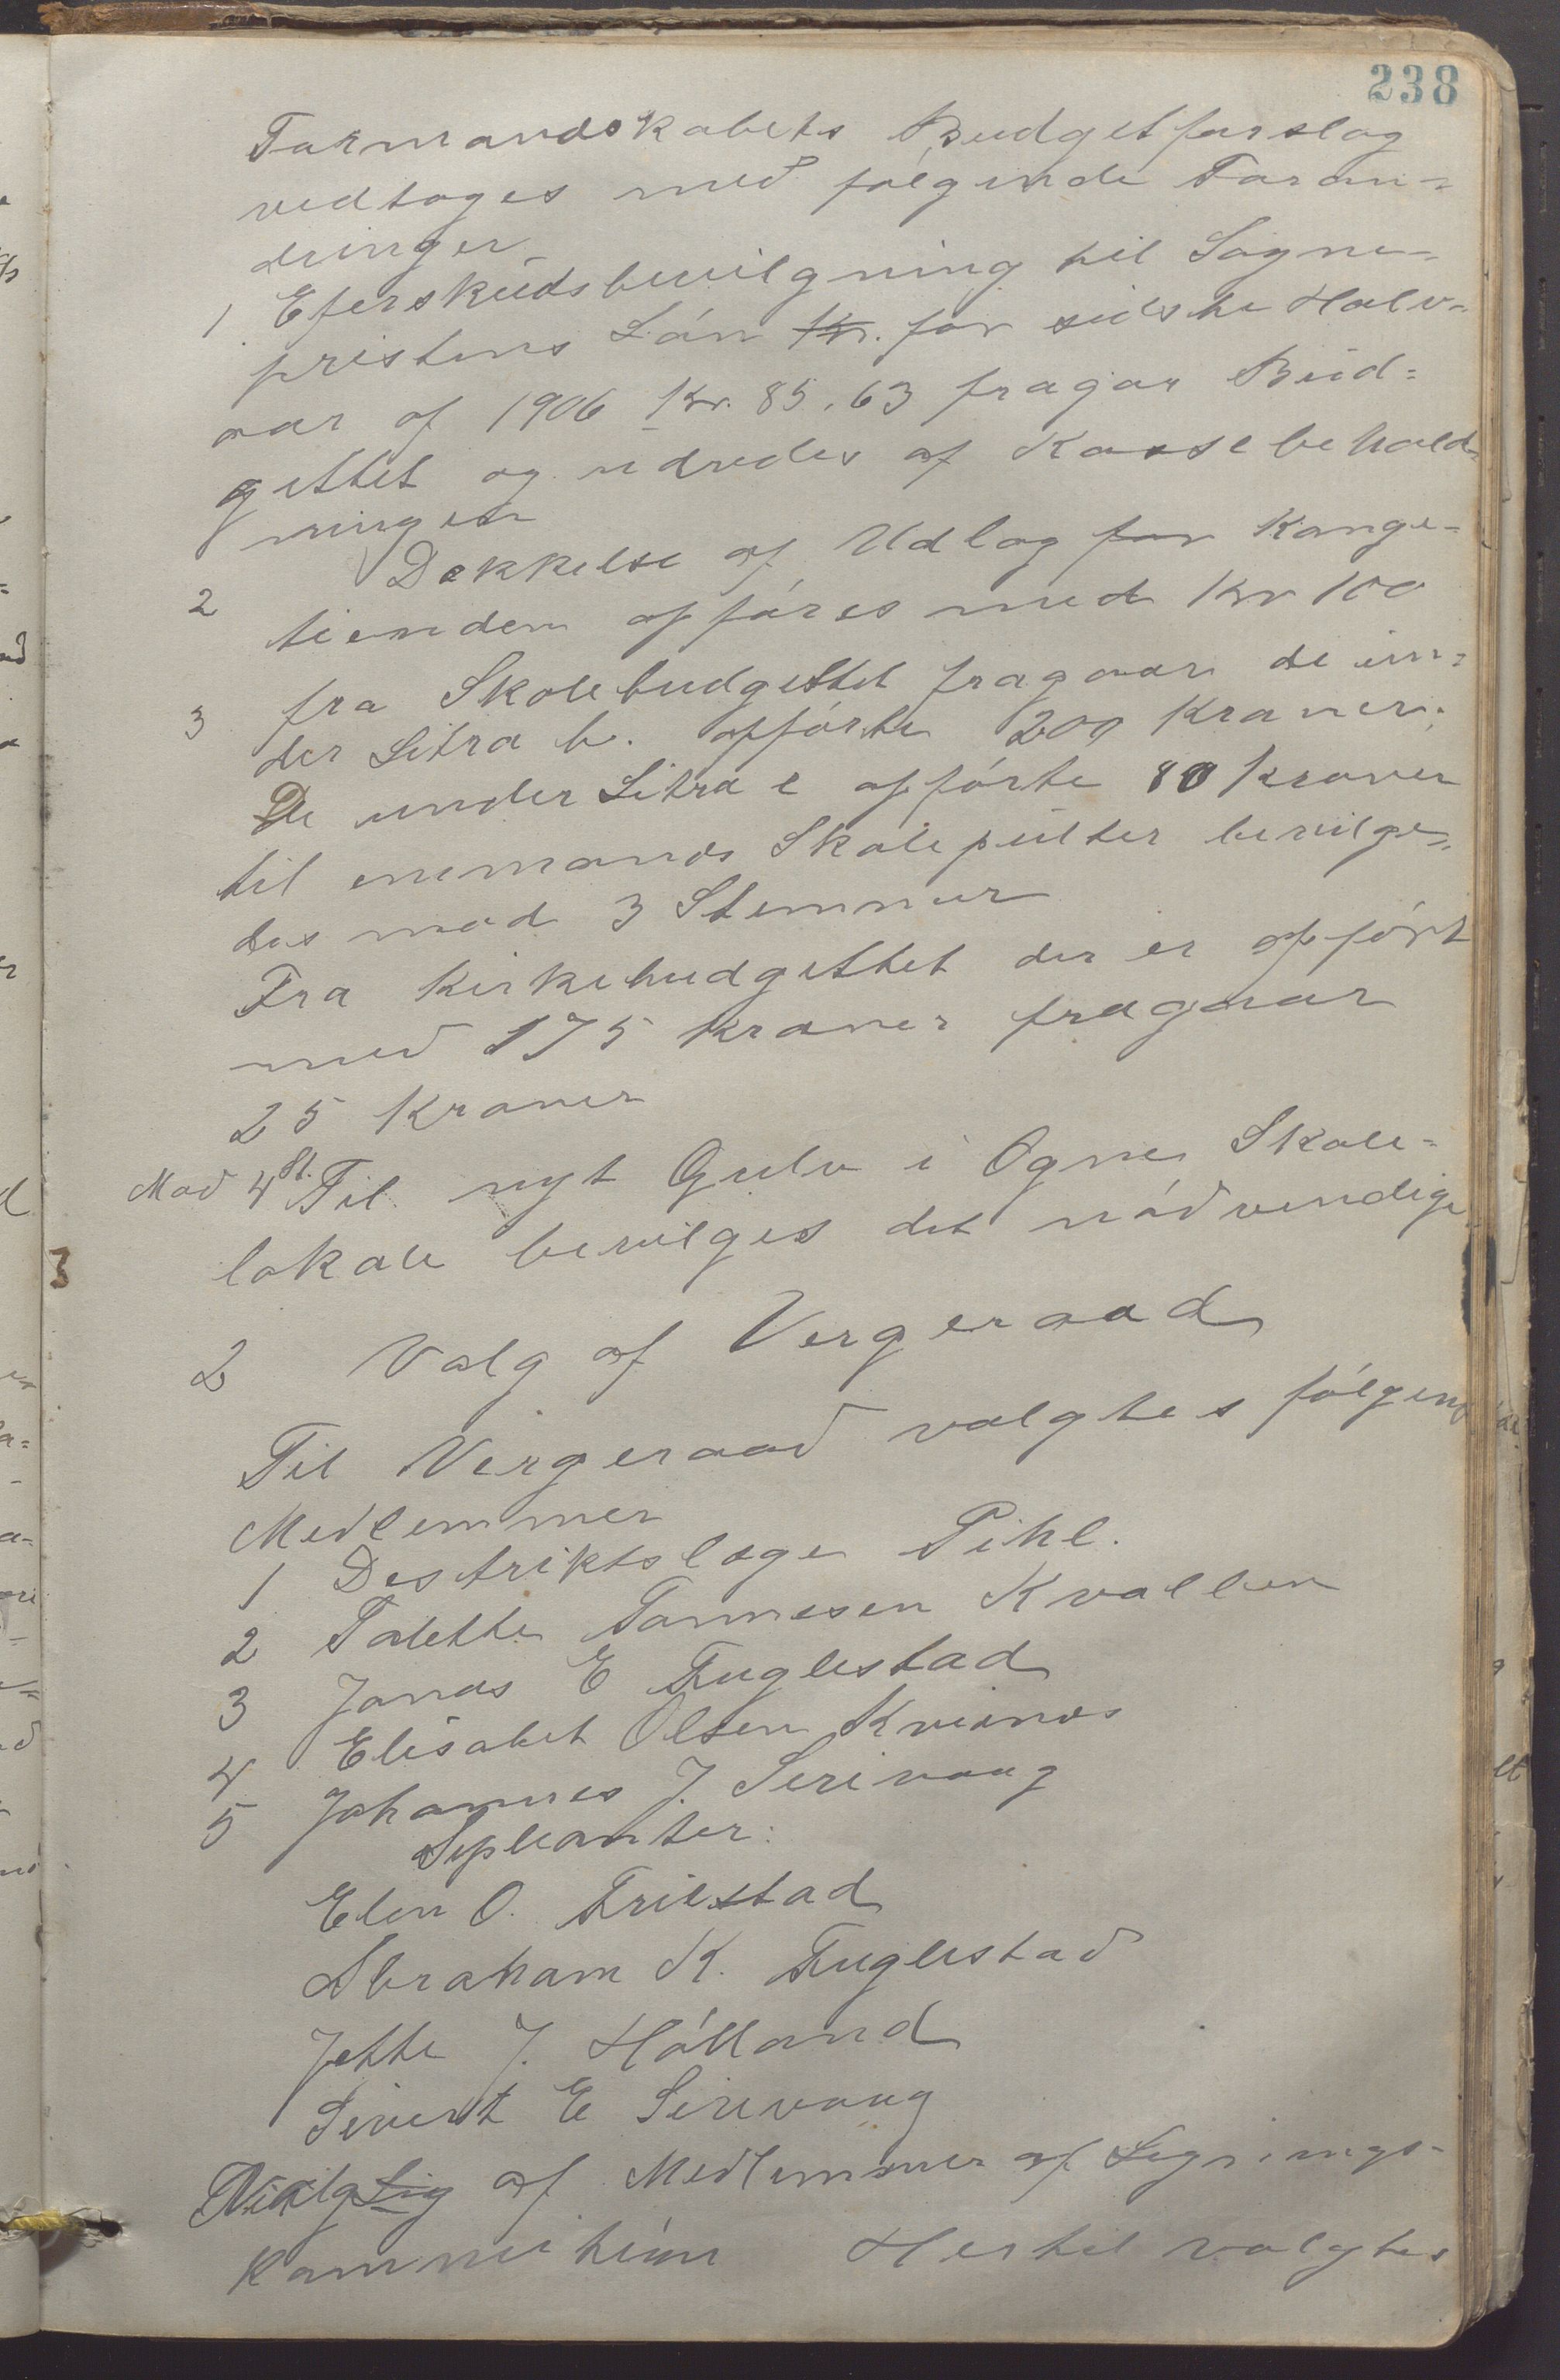 238
Formandskabets Budgetforslag
vedtoges med følgende Foran-
dringer
1 Eferskudsbevilgning til Sogne-
pristens Lón Kr. for sidste Halv-
aar af 1906 Kr. 85.63 fragaar Bud-
gettet og udredes af Kassebehold-
ningen
2 Dekkelse af Udlag for Konge-
tienden opføres med Kr 100
3 fra Skolebudgettet fragaar de un-
der Litra b. opførte 200 Kroner.
De under Litra e opførte 80 Kroner
til enmands Skolepulter bevilge-
des mod 3 Stemmer
Fra Kirkebudgettet der er opført
med 175 Kroner fragaar
25 Kroner
Mod 4 St. Til nyt Gulv i Ogne Skole-
lokale bevilges det nødvendige
2 Valg af Vergeraad
Til Vergeraad valgtes følgend
Medlemmer
1 Destriktslæge Pihl.
2 Tolette Tonnesen Kvalben
3 Jonas E Fuglestad
4 Elisabet Olsen Kvianes
5 Johannes J. Sirivaag
Supleanter:
Elen O. Friestad
Abraham K. Fuglestad
Jette J. Hólland
Sivert E Sirevaag
Valg af Medlemmer af Lignings-
kommitéen Hertil valgtes